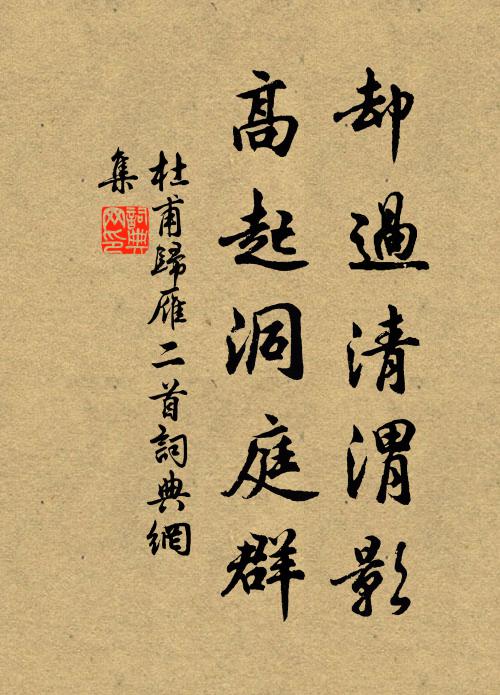 却過清渭影
高起洞庭群
杜甫歸雁二首詞典網
集
詞典網印